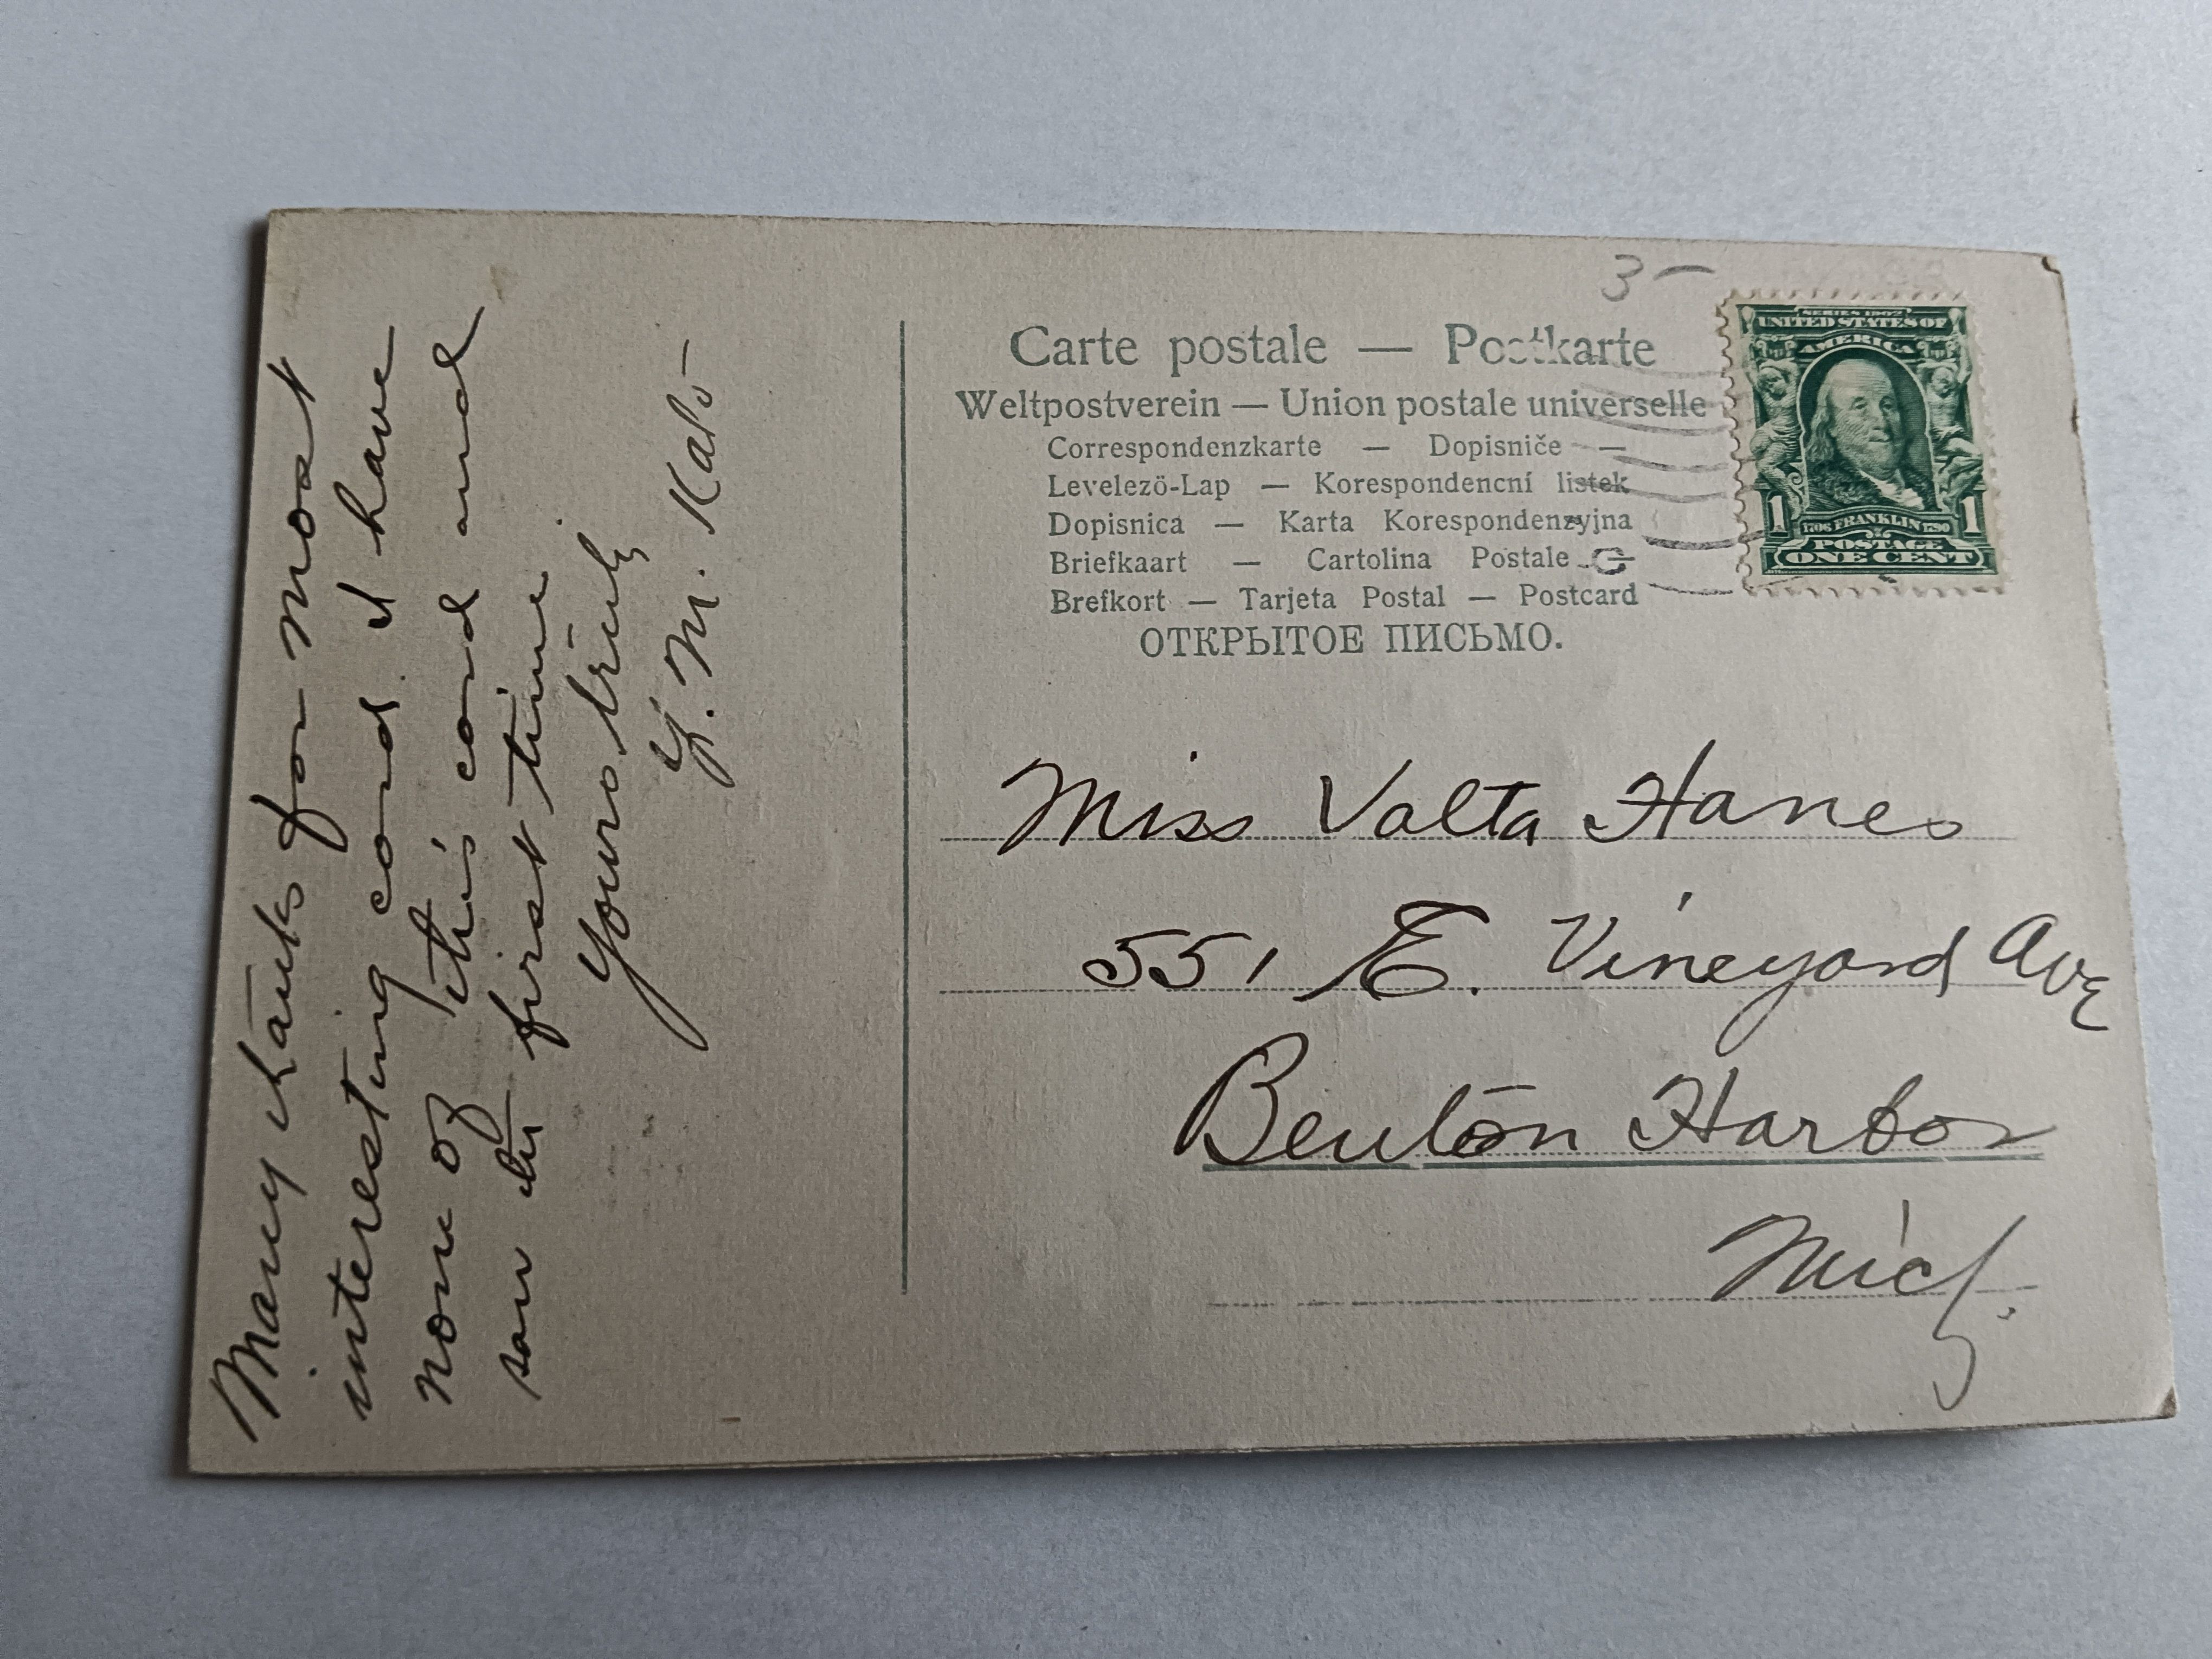 Many thanks for most
interesting card. I have
none of this card and
saw in first time.
Yours truly
Y. M. Kato
3 —
Carte postale — Postkarte
Weltpostverein — Union postale universelle
Correspondenzkarte — Dopisniče —
Levelezö-Lap — Korespondencní listek
Dopisnica — Karta Korespondenzyjna
Briefkaart — Cartolina Postale
Brefkort — Tarjeta Postal — Postcard
ОТКРЫТОЕ ПИСЬМО.
SERIES 1902
UNITED STATES OF
AMERICA
1 1706 FRANKLIN 1790 1
POSTAGE
ONE CENT
Miss Valta Hanes
551 E. Vineyard Ave
Benton Harbor
Mich.